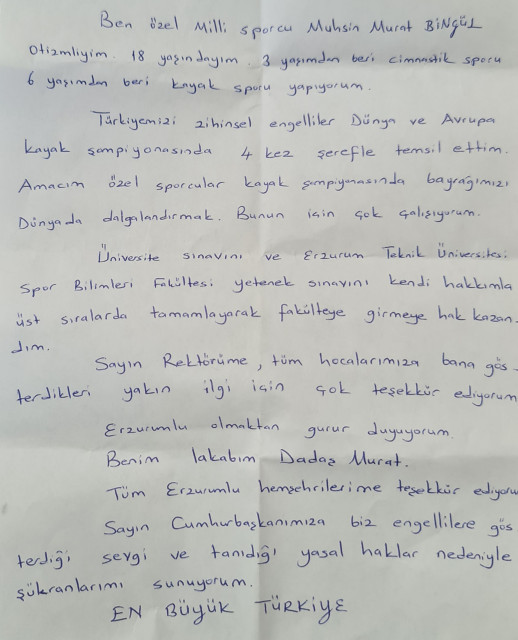 Ben özel Milli sporcu Muhsin Murat BİNGÜL
Otizmliyim. 18 yaşındayım. 3 yaşımdan beri cimnastik sporu
6 yaşımdan beri kayak sporu yapıyorum.
Türkiyemizi zihinsel engelliler Dünya ve Avrupa
kayak şampiyonasında 4 kez şerefle temsil ettim.
Amacım özel sporcular kayak şampiyonasında bayrağımızı
Dünyada dalgalandırmak. Bunun için çok çalışıyorum.
Üniversite sınavını ve Erzurum Teknik Üniversitesi
Spor Bilimleri Fakültesi yetenek sınavını kendi hakkımla
üst sıralarda tamamlayarak fakülteye girmeye hak kazan-
dım.
Sayın Rektörüme, tüm hocalarımıza bana gös-
terdikleri yakın ilgi için çok teşekkür ediyorum
Erzurumlu olmaktan gurur duyuyorum.
Benim lakabım Dadaş Murat.
Tüm Erzurumlu hemşehrilerime teşekkür ediyoru
Sayın Cumhurbaşkanımıza biz engellilere gös
terdiği sevgi ve tanıdığı yasal haklar nedeniyle
şükranlarımı sunuyorum.
EN BÜYÜK TÜRKİYE